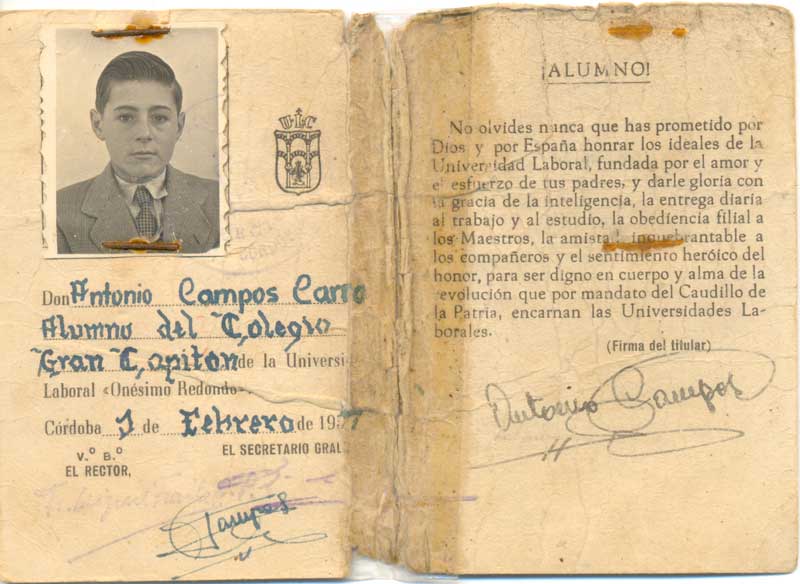 U.L.C.
Don Antonio Campos Carro
Alumno del Colegio
Gran Capitan de la Universi
Laboral «Onésimo Redondo».
Córdoba 1 de Febrero de 195
V.º B.º
EL RECTOR,
EL SECRETARIO GRAL
Campos
¡ALUMNO!
No olvides nunca que has prometido por
Dios y por España honrar los ideales de la
Universidad Laboral, fundada por el amor y
el esfuerzo de tus padres, y darle gloria con
la gracia de la inteligencia, la entrega diaria
al trabajo y al estudio, la obediencia filial a
los Maestros, la amistad inquebrantable a
los compañeros y el sentimiento heróico del
honor, para ser digno en cuerpo y alma de la
revolución que por mandato del Caudillo de
la Patria, encarnan las Universidades La-
borales.
(Firma del titular)
Antonio Campos